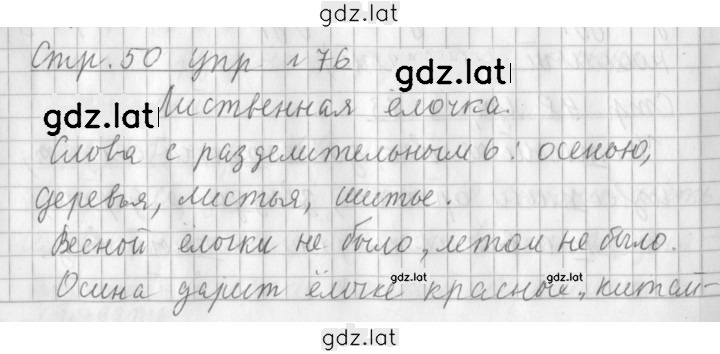 gdz.lat
Стр. 50 упр 176
gdz.lat
gdz.lat
Лиственная ёлочка.
Слова с разделительным ь: осенью,
деревья, листья, шитье.
Весной ёлочки не было, летом не было.
gdz.lat gdz.lat
Осина дарит ёлочке красный, китай-
gdz.lat